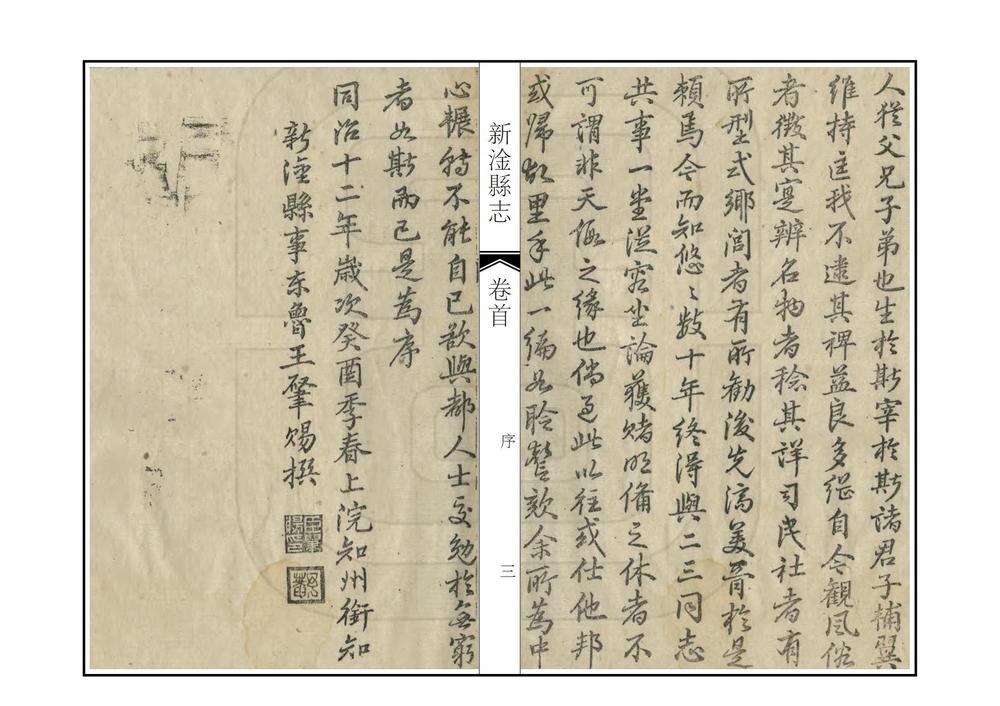 人猶父兄子弟也生於斯宰於斯諸君子補翼
維持匡我不逮其裨益良多继自今觀風俗
者徵其寔辨名物者稔其詳司民社者有
所型式鄉閭者有所勸後先濟美胥於是
賴焉今而知悠悠數十年终得與二三同志
共事一堂從容坐論獲賭明俻之休者不
可謂非天假之缘也倘過此以往或仕他邦
或歸故里手此一编如聆謦欬余所為中
新淦縣志
卷首
序
三
心輾转不能自已欲與都人士交勉於無窮
者如斯而已是為序
同治十二年歲次癸酉季春上浣知州銜知
新淦縣事东魯王肇賜撰